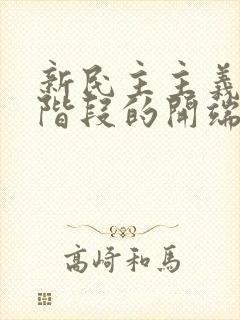 新民主主義
階段的開端
高崎和馬